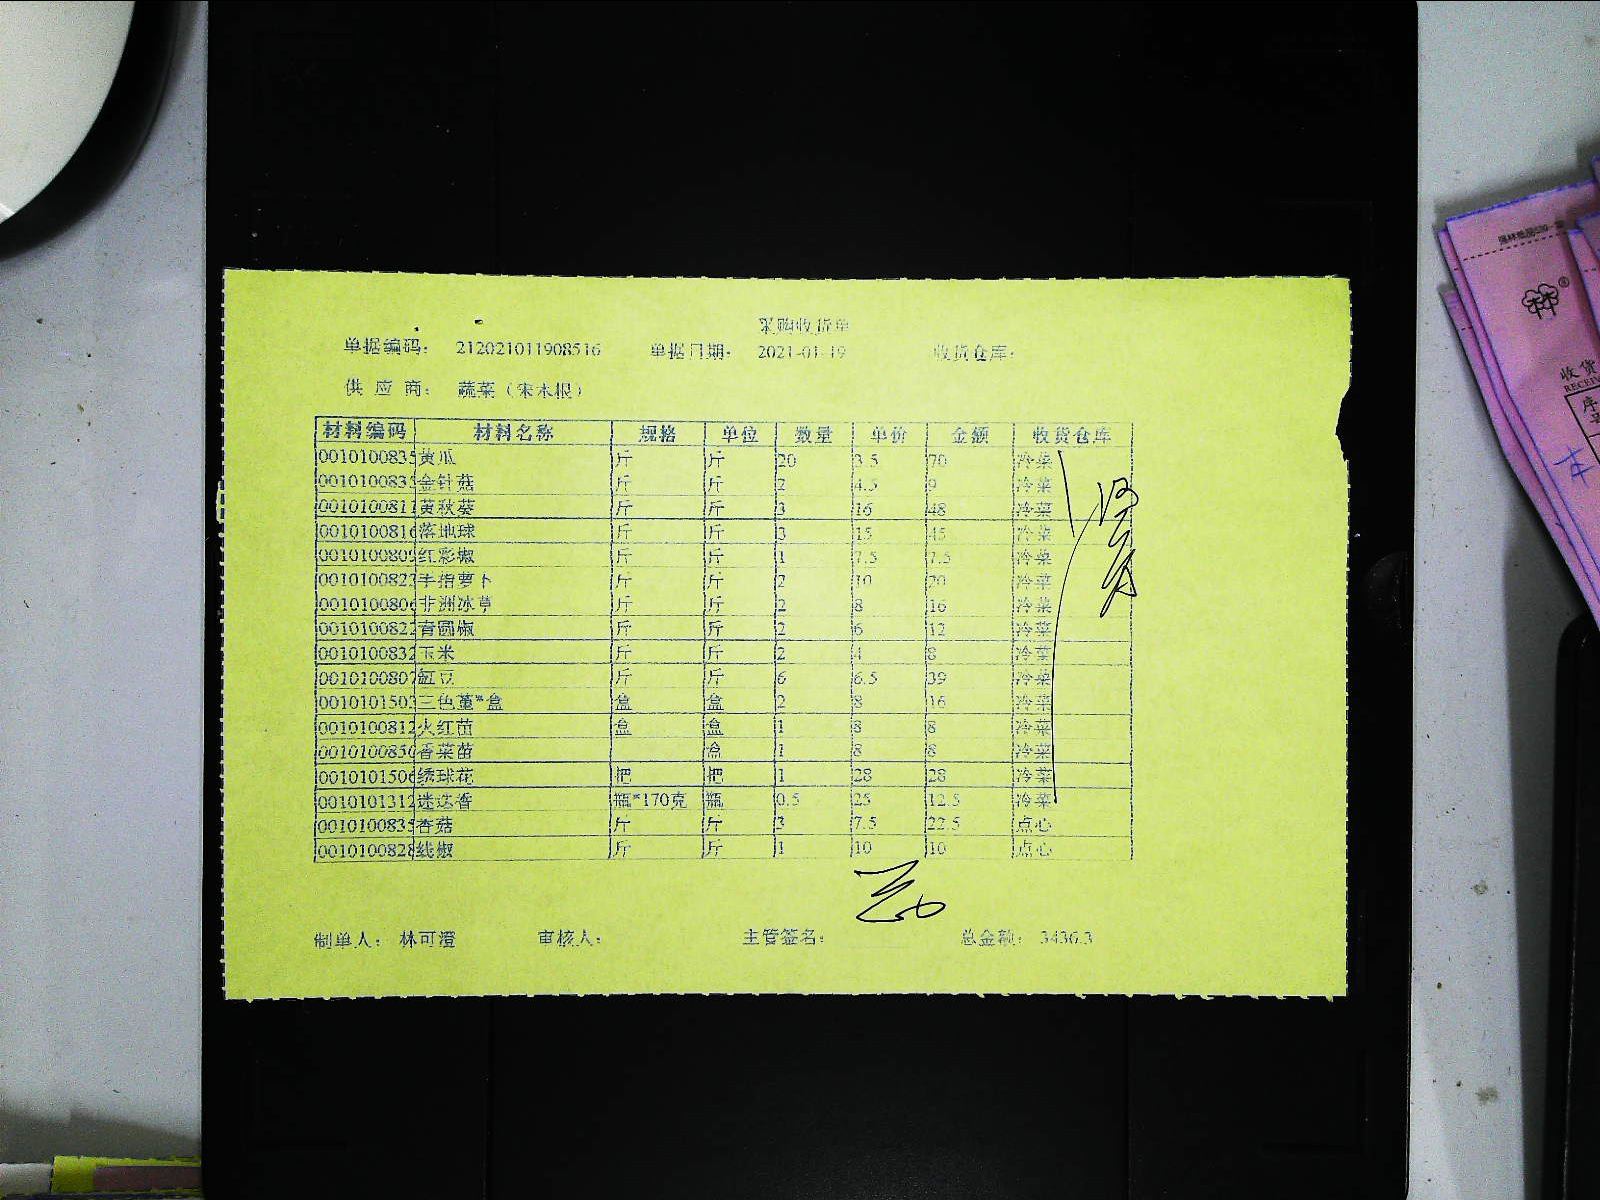 采购收货单
单据编码： 212021011908516 单据日期： 2021-01-19 收货仓库：
供 应 商： 蔬菜（宋木根）
材料编码 材料名称 规格 单位 数量 单价 金额 收货仓库
0010100835 黄瓜 斤 斤 20 3.5 70 冷菜
0010100835 金针菇 斤 斤 2 4.5 9 冷菜
0010100811 黄秋葵 斤 斤 3 16 48 冷菜
0010100816 落地球 斤 斤 3 15 45 冷菜
0010100809 红彩椒 斤 斤 1 7.5 7.5 冷菜
0010100827 手指萝卜 斤 斤 2 10 20 冷菜
0010100806 非洲冰草 斤 斤 2 8 16 冷菜
0010100822 青圆椒 斤 斤 2 6 12 冷菜
0010100832 玉米 斤 斤 2 4 8 冷菜
0010100807 豇豆 斤 斤 6 6.5 39 冷菜
0010101503 三色堇*盒 盒 盒 2 8 16 冷菜
0010100812 火红苗 盒 盒 1 8 8 冷菜
0010100850 香菜苗 盒 1 8 8 冷菜
0010101506 绣球花 把 把 1 28 28 冷菜
0010101312 迷迭香 瓶*170克 瓶 0.5 25 12.5 冷菜
0010100835 香菇 斤 斤 3 7.5 22.5 点心
0010100828 线椒 斤 斤 1 10 10 点心
制单人： 林可澄 审核人： 主管签名： 总金额： 3436.3
收货
RECEIV
序